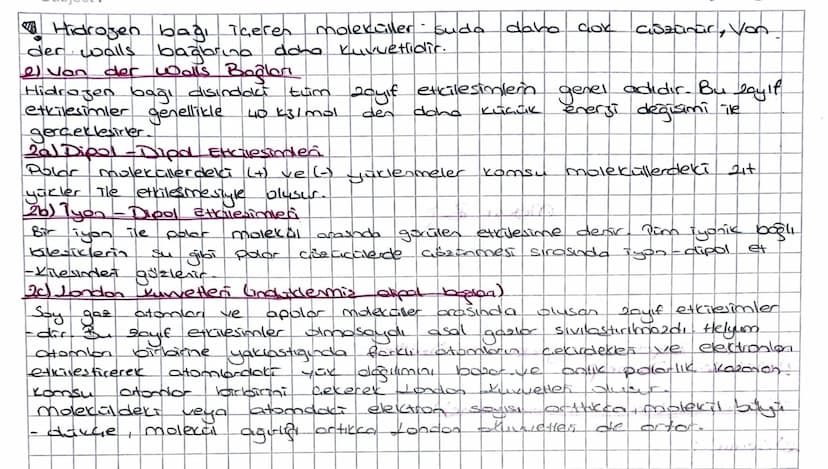 Hidrojen bağı içeren moleküller suda daha çok çözünür, Van
der walls bağlarına daha kuvvetlidir.
2) Van der Walls Bağları
Hidrojen bağı dışındaki tüm zayıf etkileşimlerin genel adıdır. Bu zayıf
etkileşimler genellikle 40 kj/mol den daha küçük enerji değişimi ile
gerçekleşirler.
2a) Dipol - Dipol Etkileşimleri
Polar moleküllerdeki (+) ve (-) yüklenmeler komşu moleküllerdeki zıt
yükler ile etkileşmesiyle oluşur.
2b) İyon - Dipol Etkileşimleri
Bir iyon ile polar molekül arasında görülen etkileşime denir. Tüm iyonik bağlı
bileşiklerin su gibi polar çözücülerde çözünmesi sırasında iyon-dipol et
-kileşimleri gözlenir.
2c) London Kuvvetleri (indüklenmiş dipol bağları)
Soy gaz atomları ve apolar moleküller arasında oluşan zayıf etkileşimler
-dir. Bu zayıf etkileşimler olmasaydı asal gazlar sıvılaştırılmazdı. Helyum
atomları birbirine yaklaştığında farklı atomların çekirdekleri ve elektronları
etkileştirerek atomlardaki yük dağılımını bozar ve anlık polarlık kazanan
komşu atomlar birbirini çekerek London kuvvetleri oluşur.
moleküldeki veya atomdaki elektron sayısı arttıkca, molekül büyü
-dükçe, molekül ağırlığı arttıkca London kuvvetleri de artar.